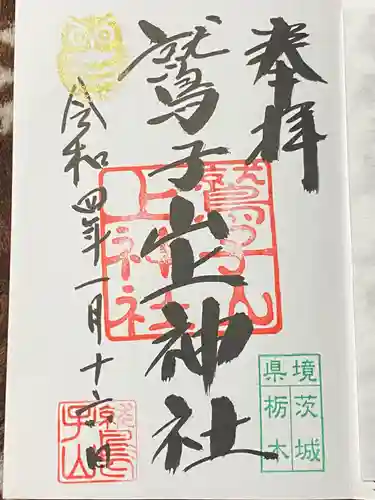 奉拝
鷲子山上神社
令和四年一月十六日
鷲子山上神社
鷲子山
境茨城
県栃木